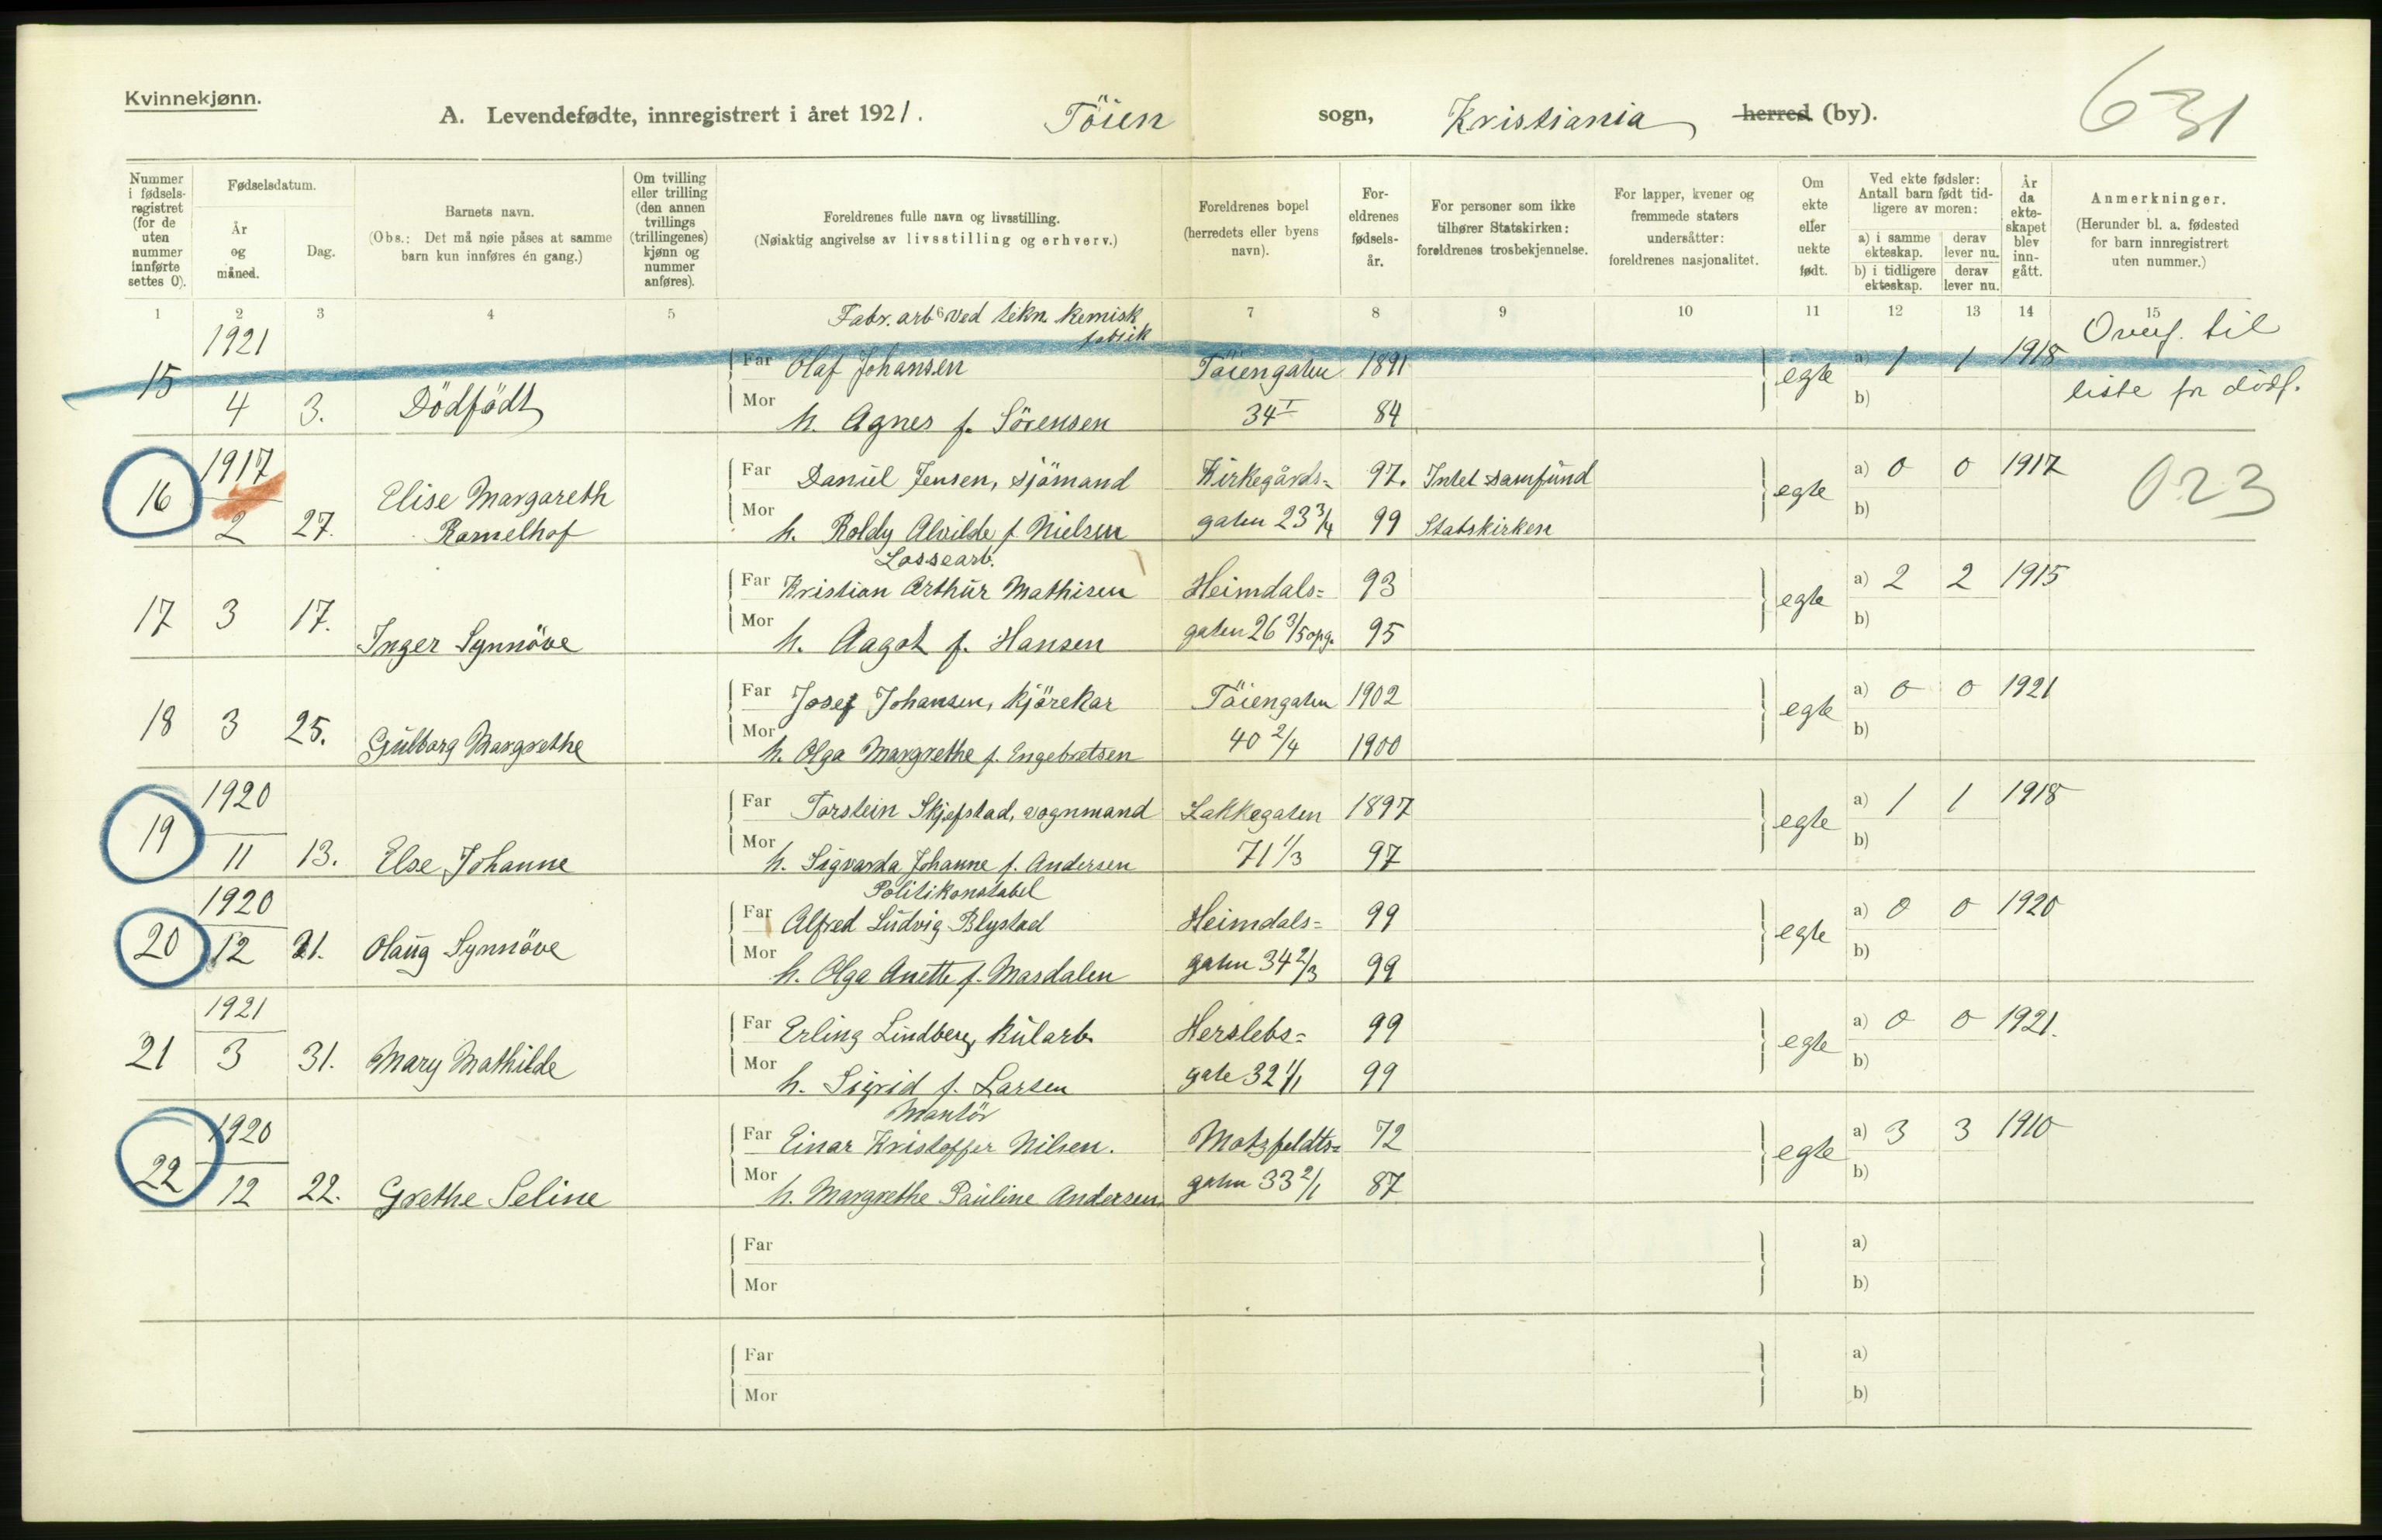 Kvinnekjønn.
A. Levendefødte, innregistrert i året 1921. Töien sogn, Kristiania herred (by).
631
Nummer i fødselsregistret (for de uten nummer innførte settes 0).
Fødselsdatum.
År og måned.
Dag.
Barnets navn.
(Obs.: Det må nøie påses at samme barn kun innføres én gang.)
Om tvilling eller trilling (den annen tvillings (trillingenes) kjønn og nummer anføres).
Foreldrenes fulle navn og livsstilling.
(Nøiaktig angivelse av livsstilling og erhverv.)
Foreldrenes bopel (herredets eller byens navn).
Foreldrenes fødselsår.
For personer som ikke tilhører Statskirken: foreldrenes trosbekjennelse.
For lapper, kvener og fremmede staters undersåtter: foreldrenes nasjonalitet.
Om ekte eller uekte født.
Ved ekte fødsler: Antall barn født tidligere av moren:
a) i samme ekteskap. derav lever nu.
b) i tidligere ekteskap. derav lever nu.
År da ekteskapet blev inngått.
Anmerkninger.
(Herunder bl. a. fødested for barn innregistrert uten nummer.)
1 2 3 4 5 6 7 8 9 10 11 12 13 14 15
1921 Fabr. arb. ved tekn. kemisk fabrik Overf. til
15 Far Olaf Johansen Töiengaten 1891 egte a) 1 1 1918
4 3. Dödfödt Mor h. Agnes f. Sörensen 34 I 84 b) liste for dödf.
1917
16 Far Daniel Jensen, sjömand Kirkegårds= 97. Intet samfund egte a) 0 0 1917 023
2 27. Elise Margareth Ramelhof Mor h. Roldy Alvilde f. Nielsen gaten 23 3/4 99 Statskirken b)
Lossearb.
17 3 17. Inger Synnöve Far Kristian Arthur Mathisen Heimdals= 93 egte a) 2 2 1915
Mor h. Aagot f. Hansen gaten 26 3/5 opg. 95 b)
18 3 25. Gulborg Margrethe Far Josef Johansen, kjörekar Töiengaten 1902 egte a) 0 0 1921
Mor h. Olga Margrethe f. Engebretsen 40 2/4 1900 b)
1920
19 Far Torstein Skjefstad, vognmand Lakkegaten 1897 egte a) 1 1 1918
11 13. Else Johanne Mor h. Sigvarda Johanne f. Andersen 71 1/3 97 b)
1920 Politikonstabel
20 12 21. Olaug Synnöve Far Alfred Ludvig Blystad Heimdals= 99 egte a) 0 0 1920
Mor h. Olga Anette f. Masdalen gaten 34 2/3 99 b)
1921
21 3 31. Mary Mathilde Far Erling Lindberg, kularb. Herslebs= 99 egte a) 0 0 1921.
Mor h. Sigrid f. Larsen gate 32 1/1 99 b)
1920 Montör
22 Far Einar Kristoffer Nilsen. Motzfeldts= 72 egte a) 3 3 1910
12 22. Grethe Seline Mor h. Margrethe Pauline Andersen gaten 33 2/1 87 b)
Far a)
Mor b)
Far a)
Mor b)